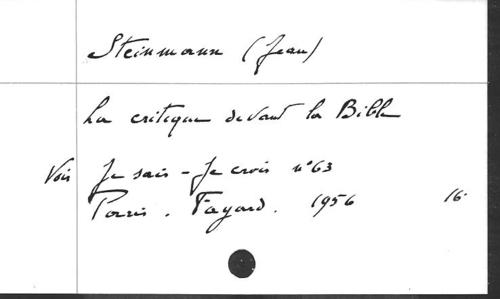 Steinmann (Jean)
La critique devant la Bible
Voir Je sais - Je crois n°63
Paris. Fayard. 1956 16.